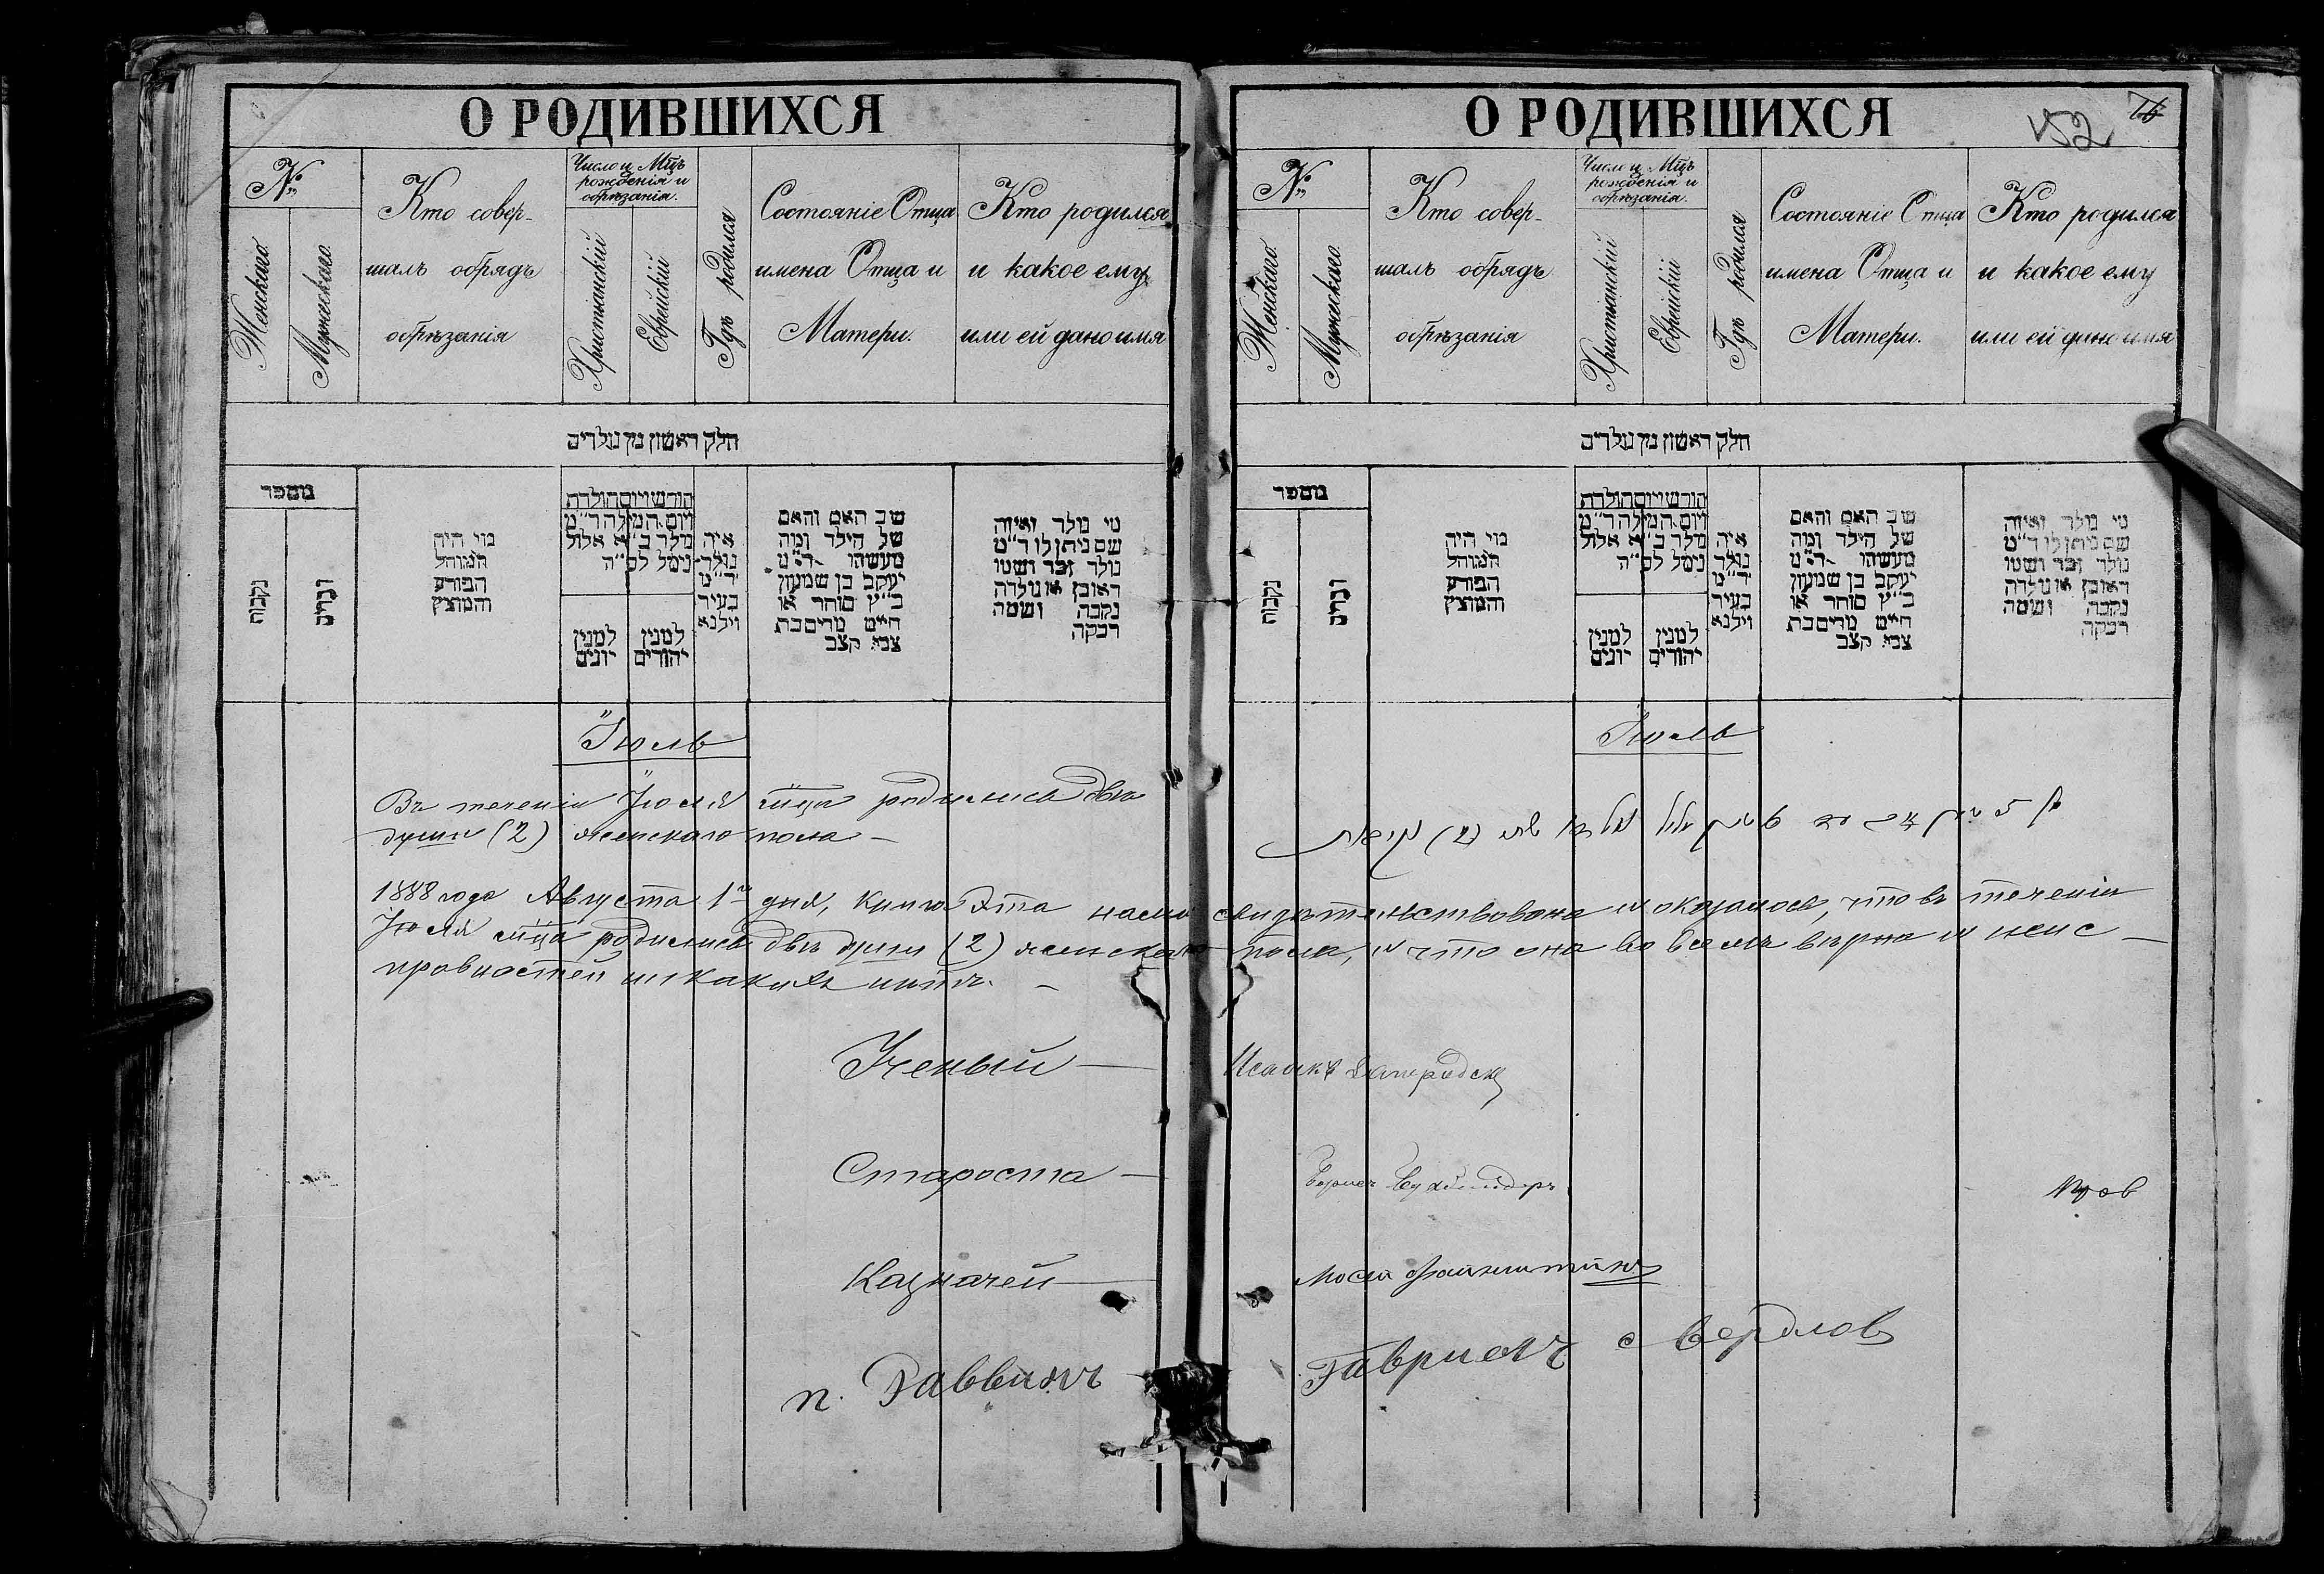 О РОДИВШИХСЯ
№
Женскаго.
Мужескаго.
Кто совер-
шалъ обрядъ
обрѣзанія
Число и Мцъ
рожденія и
обрѣзанія.
Христіанскій
Еврейскій
Гдѣ родился
Состояніе Отца
имена Отца и
Матери.
Кто родился
и какое ему
или ей дано имя
חלק ראשון מן נולדים
מספר
נקבות
זכרים
מי היה
המוהל
הפורע
והמוצץ
חודש ויום הולדת
ויום המילה ד"מ
נולד ב"א אלול
נימל לס"ה
למנין
יונים
למנין
יהודים
איה
נולד
ד"מ
בעיר
וילנא
שם האב והאם
של הילד ומה
מעשהו ד"מ
יעקב בן שמעון
כ"ץ סוחר או
חיים מרים בת
צבי קצב
מי נולד ואיזה
שם ניתן לו ד"מ
נולד זכר ושמו
ראובן או נולדה
נקבה ושמה
רבקה
Іюль
Въ теченіи Іюля мца родились двѣ
души (2) женскаго пола —
1888 года Августа 1го дня, книга эта нами
Іюля мца родились двѣ души (2) женскаго
правностей никакихъ нѣтъ. —
Ученый —
Староста —
Казначей —
п. Раввинъ
О РОДИВШИХСЯ
152
№
Женскаго.
Мужескаго.
Кто совер-
шалъ обрядъ
обрѣзанія
Число и Мцъ
рожденія и
обрѣзанія.
Христіанскій
Еврейскій
Гдѣ родился
Состояніе Отца
имена Отца и
Матери.
Кто родился
и какое ему
или ей дано имя
חלק ראשון מן נולדים
מספר
נקבות
זכרים
מי היה
המוהל
הפורע
והמוצץ
חודש ויום הולדת
ויום המילה ד"מ
נולד ב"א אלול
נימל לס"ה
למנין
יונים
למנין
יהודים
איה
נולד
ד"מ
בעיר
וילנא
שם האב והאם
של הילד ומה
מעשהו ד"מ
יעקב בן שמעון
כ"ץ סוחר או
חיים מרים בת
צבי קצב
מי נולד ואיזה
שם ניתן לו ד"מ
נולד זכר ושמו
ראובן או נולדה
נקבה ושמה
רבקה
Іюль
свидѣтельствована и оказалось, что въ теченіи
пола, и что она во всемъ вѣрна и неис —
Исаакъ
Мосей Файнштейнъ
Гавриелъ Свердловъ